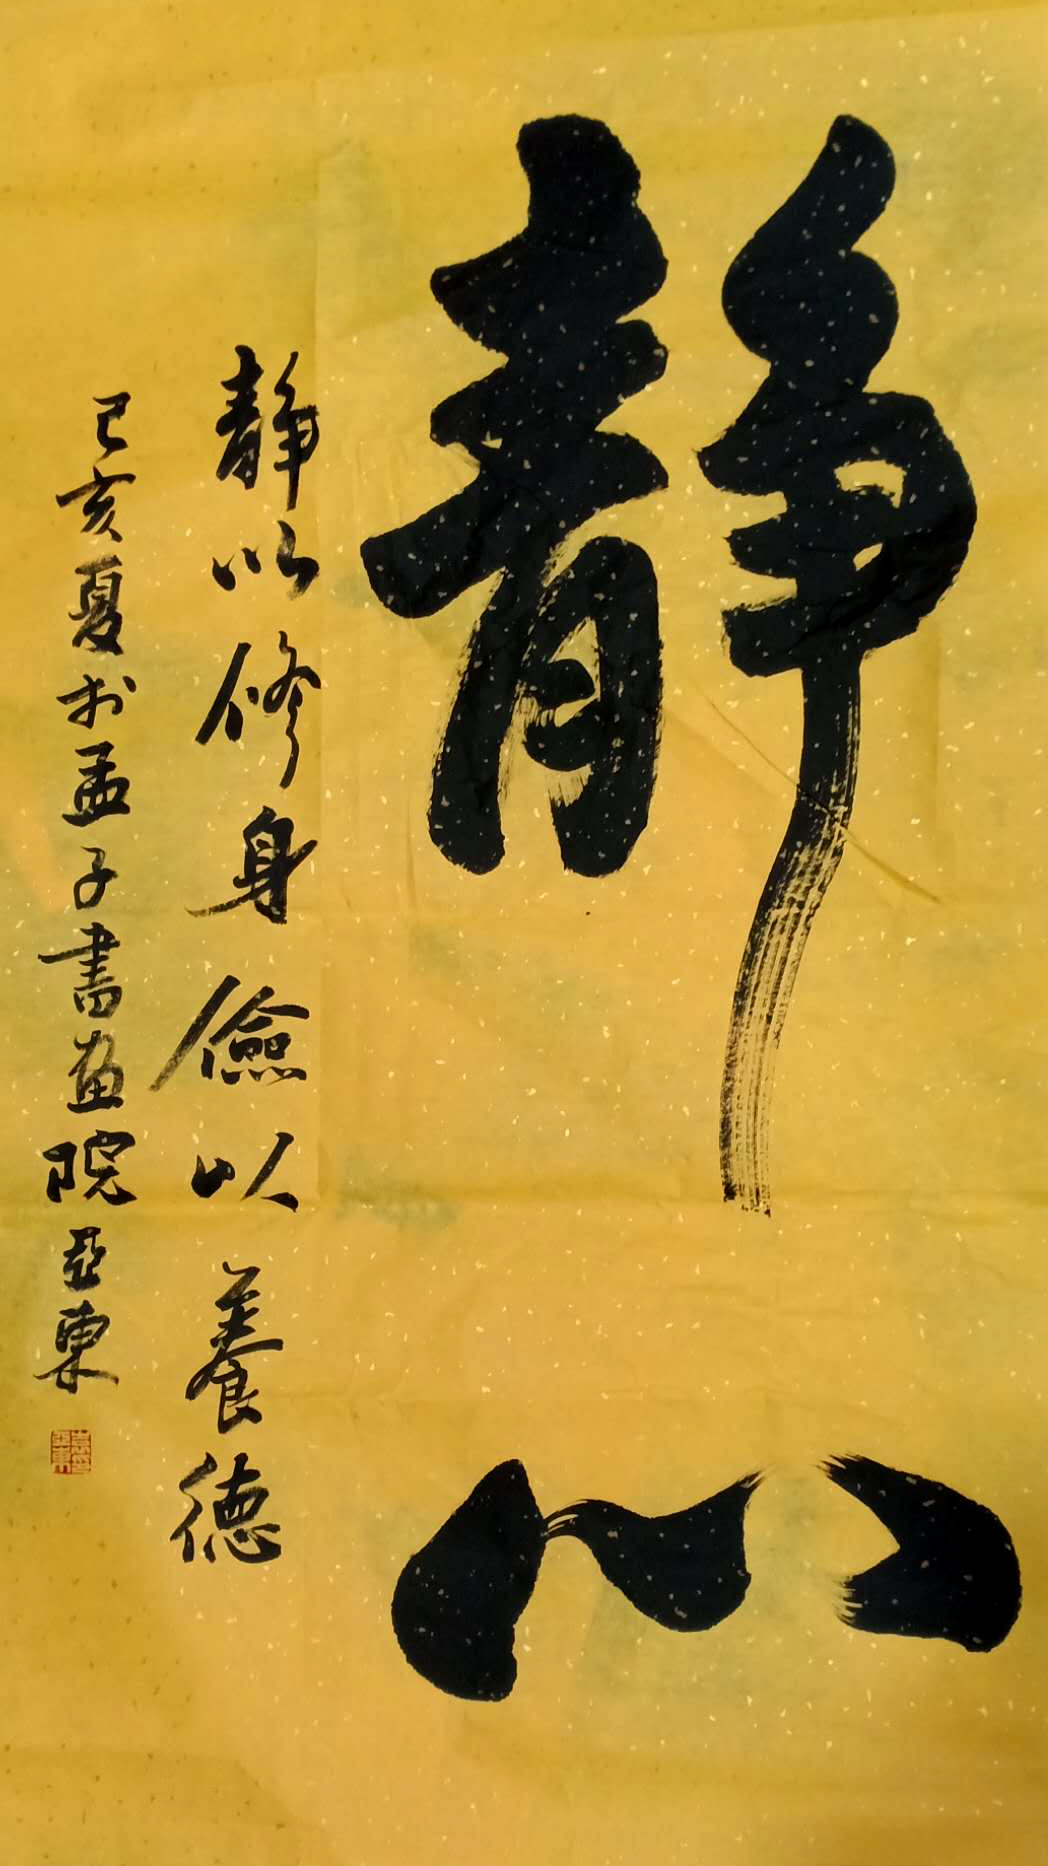 靜心
靜以修身儉以養德
己亥夏於孟子書畫院亞東